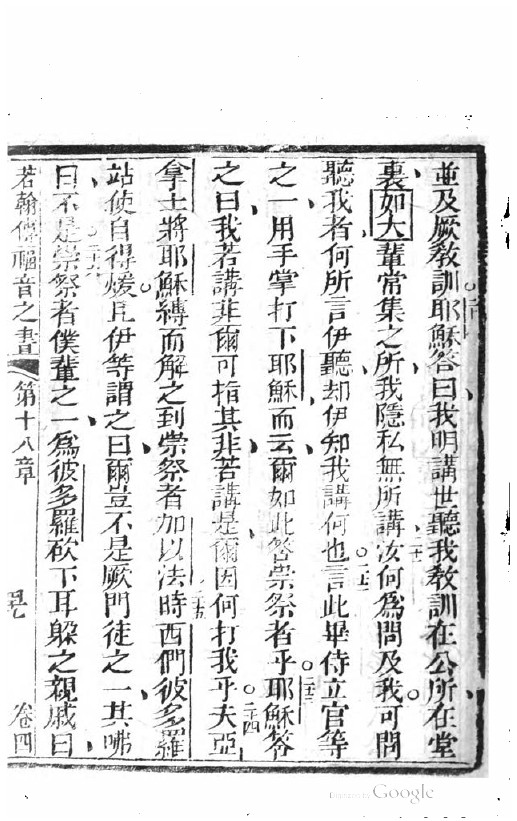 並及厥教訓耶穌答曰我明講世聽我教訓在公所在堂
裏如大輩常集之所我隱私無所講汝何為問及我可問
聽我者何所言伊聽却伊知我講何也言此畢侍立官等
之一用手掌打下耶穌而云爾如此答崇祭者乎耶穌答
之曰我若講非爾可指其非若講是爾因何打我乎夫亞
拿士將耶穌縛而解之到崇祭者加以法時西們彼多羅
站使自得煖且伊等謂之曰爾豈不是厥門徒之一其咈
曰不是崇祭者僕輩之一為彼多羅砍下耳躲之親戚曰
若翰傳福音之書 第十八章 卷四
Digitized by Google